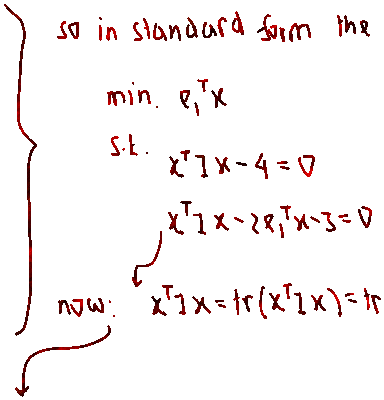 so in standard form the
min. e₁ᵀx
s.t.
xᵀIx-4=0
xᵀIx-2e₁ᵀx-3=0
now: xᵀIx=tr(xᵀIx)=tr